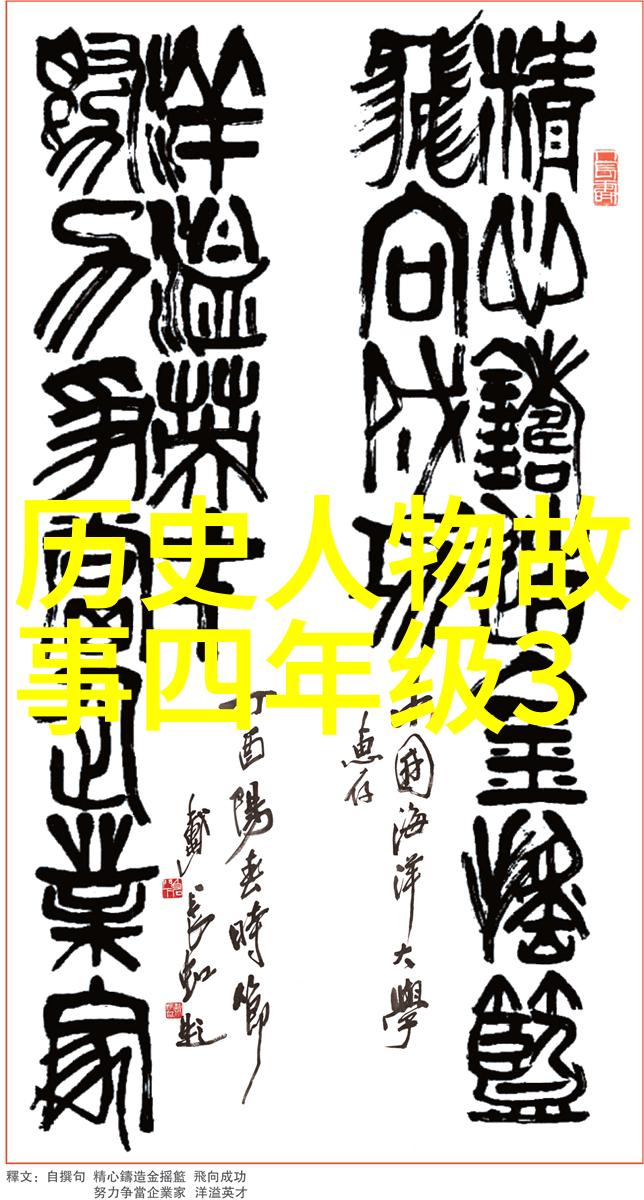 精心鑄造金摇籃
飛向成功
中國海洋大學
惠存
努力争當企業家
洋溢英才
丁酉陽春時節
戴長虹題
历史人物故
事四年级3
釋文：自撰句 精心鑄造金摇籃 飛向成功
努力争當企業家 洋溢英才